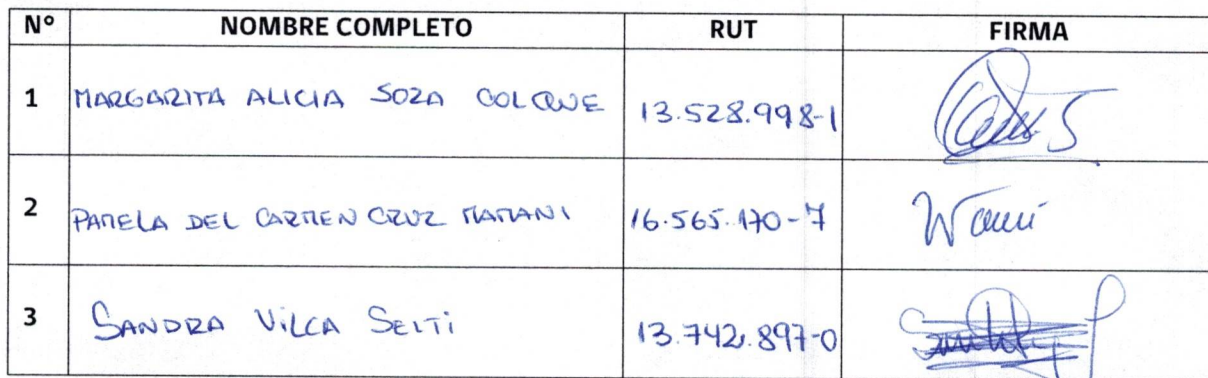 N° NOMBRE COMPLETO RUT FIRMA
1 MARGARITA ALICIA SOZA COLQUE 13.528.998-1
2 PAMELA DEL CARMEN CRUZ MAMANI 16.565.170-7
3 SANDRA VILCA SEITI 13.742.897-0